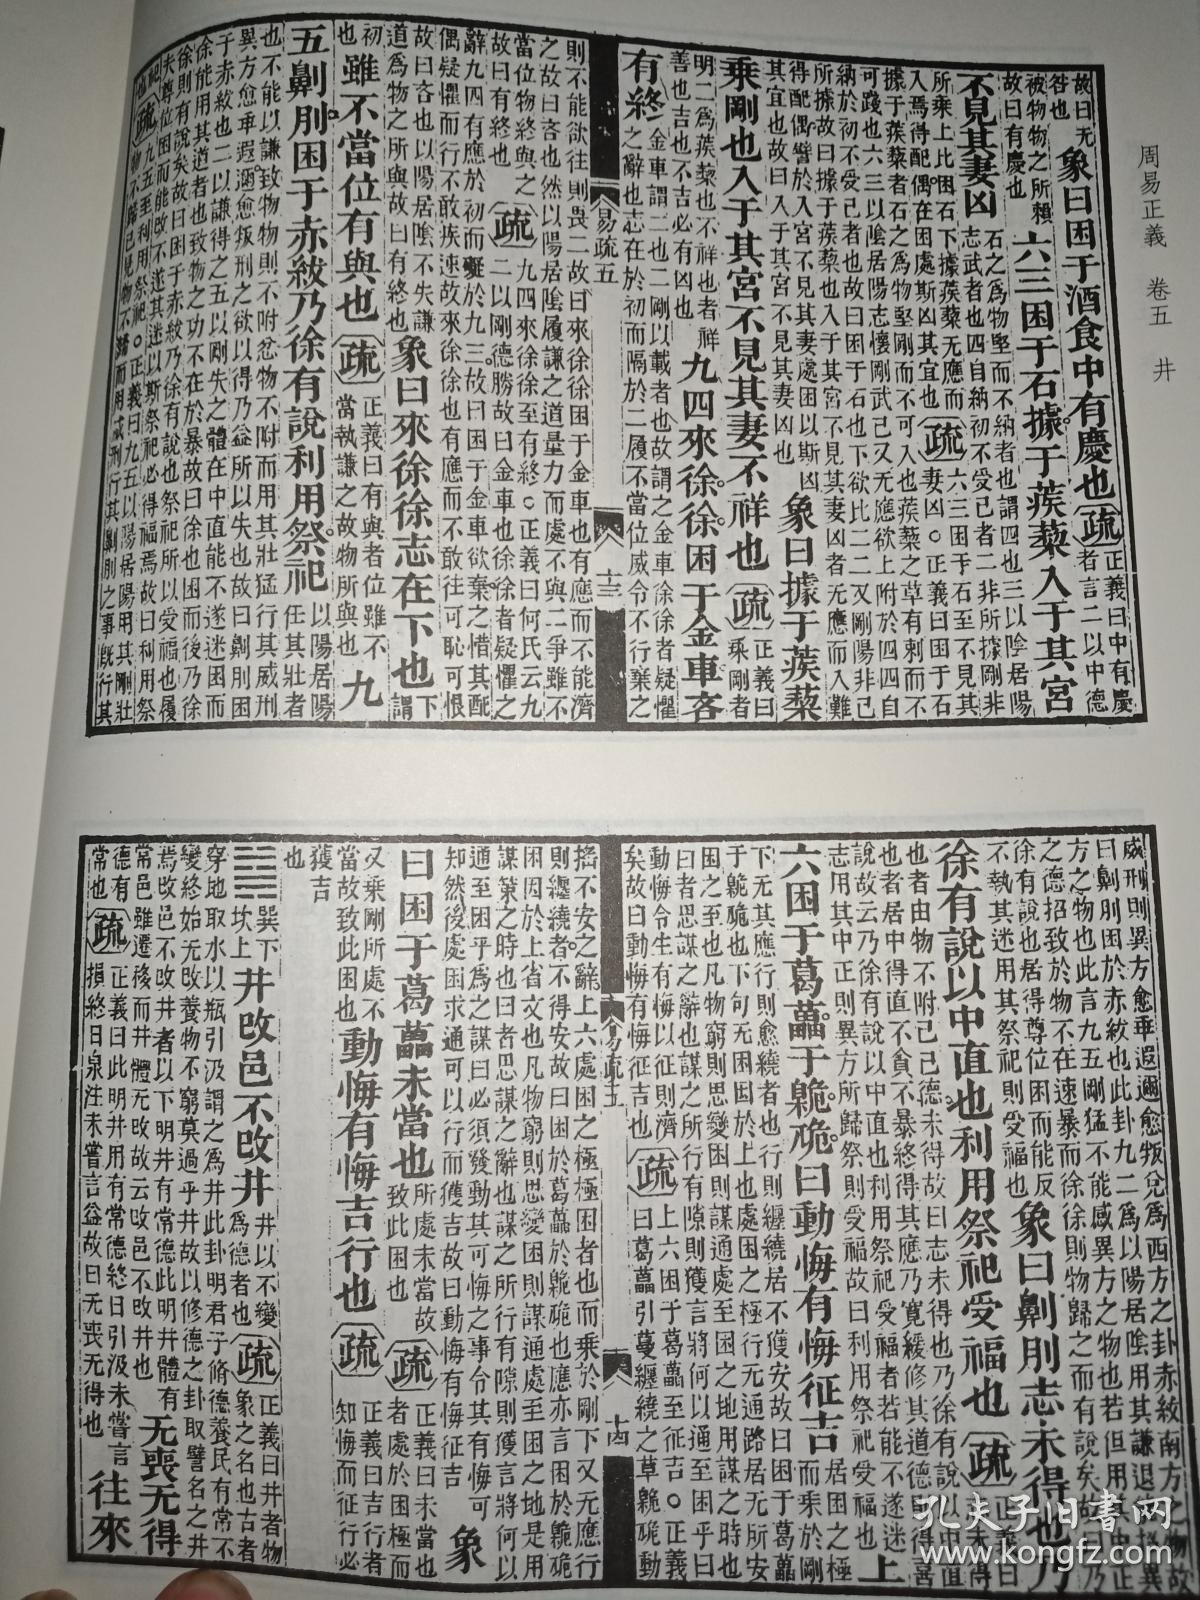 周易正義 卷五 井
故曰无咎也象曰困于酒食中有慶也疏正義曰中有慶者言二以中德
被物物之所賴故曰有慶也六三困于石據于蒺藜入于其宮
不見其妻凶石之為物堅而不納者也謂四也三以陰居陽志武者也四自納初不受己者二非所據剛非
所乘上比困石下據蒺藜无應而入焉得配偶在困處斯凶其宜也疏六三困于石至不見其妻凶○正義曰困于石
據于蒺藜者石之為物堅剛而不可入也蒺藜之草有刺而不可踐也六三以陰居陽志懷剛武己又无應欲上附於四四自
納於初不受己者也故曰困于石也下欲比二二又剛陽非己所據故曰據于蒺藜也入于其宮不見其妻凶者无應而入難
得配偶譬於入宮不見其妻處困以斯凶其宜也故曰入于其宮不見其妻凶也象曰據于蒺藜
乘剛也入于其宮不見其妻不祥也疏正義曰乘剛者
明二為蒺藜也不祥也者祥善也吉也不吉必有凶也九四來徐徐困于金車吝
有終金車謂二也二剛以載者也故謂之金車徐徐者疑懼之辭也志在於初而隔於二履不當位威令不行棄之
易疏五 十三
則不能欲往則畏二故曰來徐徐困于金車也有應而不能濟之故曰吝也然以陽居陰履謙之道量力而處不與二爭雖不
當位物終與之故曰有終也疏九四來徐徐至有終○正義曰何氏云九二以剛德勝故曰金車也徐徐者疑懼之
辭九四有應於初而礙於九二故曰困于金車欲棄之惜其配偶疑懼而行不敢疾速故來徐徐也有應而不敢往可恥可恨
故曰吝也以陽居陰不失謙道為物之所與故曰有終也象曰來徐徐志在下也下謂初也
雖不當位有與也疏正義曰有與者位雖不當執謙之故物所與也九
五劓刖困于赤紱乃徐有說利用祭祀以陽居陽任其壯者
也不能以謙致物物則不附忿物不附而用其壯猛行其威刑異方愈乖遐邇愈叛刑之欲以得乃益所以失也故曰劓刖困
于赤紱也二以謙得之五以剛失之體在中直能不遂迷困而後乃徐能用其道者也致物之功不在於暴故曰徐也困而後乃徐
徐則有說矣故曰困于赤紱乃徐有說也祭祀所以受福也履夫尊位困而能改不遂其迷以斯祭祀必得福焉故曰利用祭
祀也疏九五至利用祭祀○正義曰九五以陽居陽用其剛壯物不歸己見物不歸而用威刑行其劓刖之事既行其
威刑則異方愈乖遐邇愈叛兌為西方之卦赤紱南方之物故曰劓刖困於赤紱也此卦九二為以陽居陰用其謙退能招異
方之物也此言九五剛猛不能感異方之物也若但用其中正之德招致於物不在速暴而徐徐則物歸之而有說矣故曰乃
徐有說也居得尊位困而能反不執其迷用其祭祀則受福也象曰劓刖志未得也乃
徐有說以中直也利用祭祀受福也疏正義曰志未得
也者由物不附己己德未得故曰志未得也乃徐有說以中直也者居中得直不貪不暴終得其應乃寬緩修其道德則得喜
說故云乃徐有說以中直也利用祭祀受福者若能不遂迷志用其中正則異方所歸祭則受福故曰利用祭祀受福也上
六困于葛藟于臲卼曰動悔有悔征吉居困之極而乘於剛
下无其應行則愈繞者也行則纏繞居不獲安故曰困于葛藟于臲卼也下句无困因於上也處困之極行无通路居无所安
困之至也凡物窮則思變困則謀通處至困之地用謀之時也曰者思謀之辭也謀之所行有隙則獲言將何以通至困乎曰
動悔令生有悔以征則濟矣故曰動悔有悔征吉也疏上六困于葛藟至征吉○正義曰葛藟引蔓纏繞之草臲卼動
易疏五 十四
搖不安之辭上六處困之極極困者也而乘於剛下又无應行則纏繞者不得安故曰困於葛藟於臲卼也應亦言困於臲卼
困因於上省文也凡物窮則思變困則謀通處至困之地是用謀策之時也曰者思謀之辭也謀之所行有隙則獲言將何以
通至困乎為之謀曰必須發動其可悔之事令其有悔可知然後處困求通可以行而獲吉故曰動悔有悔征吉象
曰困于葛藟未當也所處未當故致此困也疏正義曰未當也者處於困極而
又乘剛所處不當故致此困也動悔有悔吉行也疏正義曰吉行者知悔而征行必
獲吉也
巽下坎上井改邑不改井井以不變為德者也疏正義曰井者物象之名也古者
穿地取水以瓶引汲謂之為井此卦明君子脩德養民有常不變終始无改養物不窮莫過乎井故以修德之卦取譬名之井
焉改邑不改井者以下明井有常德此明井體有常邑雖遷移而井體无改故云改邑不改井也无喪无得
德有常也疏正義曰此明井用有常德終日引汲未嘗言損終日泉注未嘗言益故曰无喪无得也往來
孔夫子旧书网
www.kongfz.com